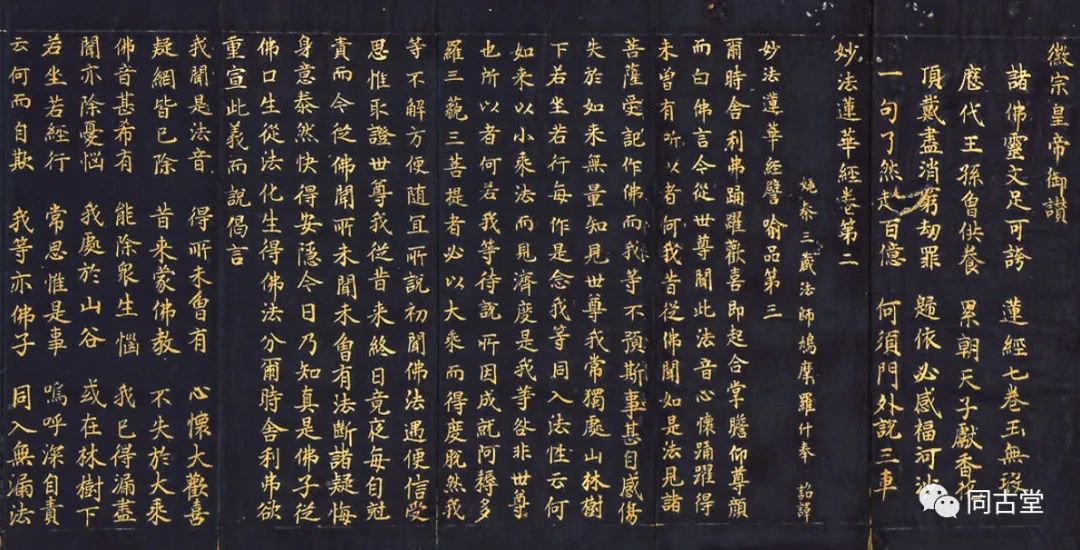 徽宗皇帝御讃
諸佛靈文足可誇 蓮經七卷玉無瑕
歷代王孫曾供養 累朝天子獻香花
頂戴盡消窮劫罪 歸依必感福河沙
一句了然超百億 何須門外說三車
妙法蓮華經卷第二
姚秦三藏法師鳩摩羅什奉 詔譯
妙法蓮華經譬喻品第三
爾時舍利弗踊躍歡喜即起合掌瞻仰尊顏
而白佛言今從世尊聞此法音心懷踊躍得
未曾有所以者何我昔從佛聞如是法見諸
菩薩受記作佛而我等不預斯事甚自感傷
失於如来無量知見世尊我常獨處山林樹
下若坐若行每作是念我等同入法性云何
如来以小乘法而見濟度是我等咎非世尊
也所以者何若我等待說所因成就阿耨多
羅三藐三菩提者必以大乘而得度脫然我
等不解方便隨宜所說初聞佛法遇便信受
思惟取證世尊我從昔来終日竟夜每自剋
責而今從佛聞所未聞未曾有法斷諸疑悔
身意泰然快得安隱今日乃知真是佛子從
佛口生從法化生得佛法分爾時舍利弗欲
重宣此義而說偈言
我聞是法音 得所未曾有 心懷大歡喜
疑網皆已除 昔来蒙佛教 不失於大乘
佛音甚希有 能除衆生惱 我已得漏盡
聞亦除憂惱 我處於山谷 或在林樹下
若坐若經行 常思惟是事 嗚呼深自責
云何而自欺 我等亦佛子 同入無漏法
同古堂